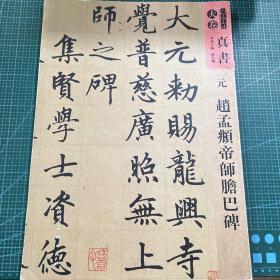 大元勑賜龍興寺
覺普慈廣照無上
師之碑
集賢學士資德
大卷
真書
元
趙孟頫帝師膽巴碑